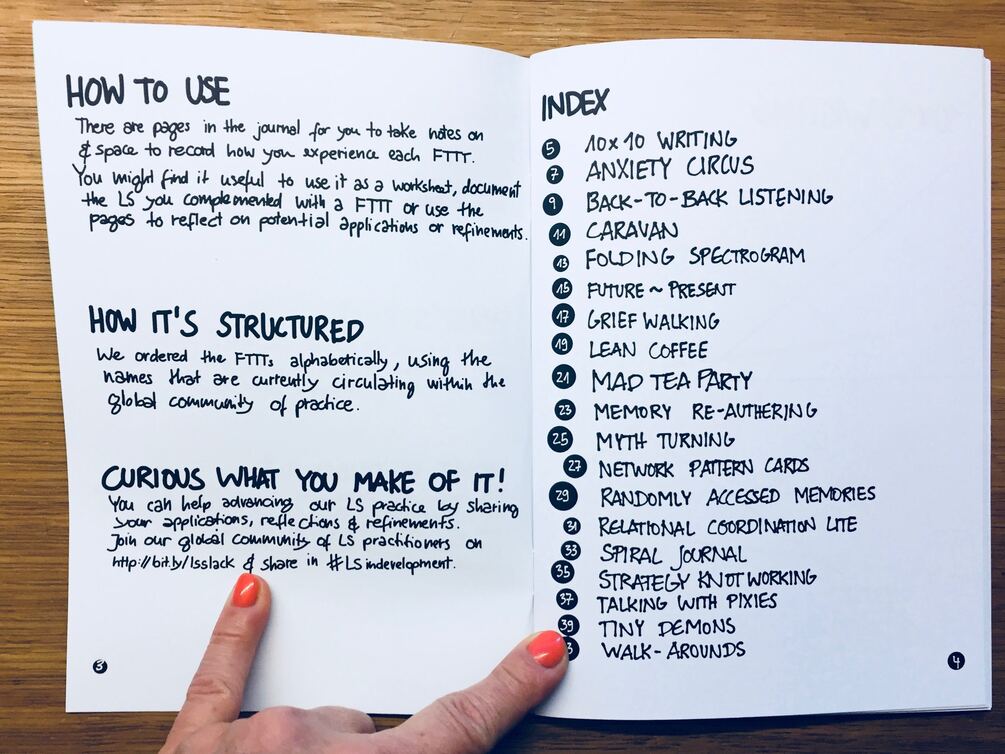 HOW TO USE
There are pages in the journal for you to take notes on
& space to record how you experience each FTTT.
You might find it useful to use it as a worksheet, document
the LS you complemented with a FTTT or use the
pages to reflect on potential applications or refinements.
HOW IT'S STRUCTURED
We ordered the FTTTs alphabetically, using the
names that are currently circulating within the
global community of practice.
CURIOUS WHAT YOU MAKE OF IT!
You can help advancing our LS practice by sharing
your applications, reflections & refinements.
Join our global community of LS practitioners on
http://bit.ly/lsslack & share in #LSindevelopment.
3
INDEX
5 10x10 WRITING
7 ANXIETY CIRCUS
9 BACK-TO-BACK LISTENING
11 CARAVAN
13 FOLDING SPECTROGRAM
15 FUTURE ~ PRESENT
17 GRIEF WALKING
19 LEAN COFFEE
21 MAD TEA PARTY
23 MEMORY RE-AUTHERING
25 MYTH TURNING
27 NETWORK PATTERN CARDS
29 RANDOMLY ACCESSED MEMORIES
31 RELATIONAL COORDINATION LITE
33 SPIRAL JOURNAL
35 STRATEGY KNOTWORKING
37 TALKING WITH PIXIES
39 TINY DEMONS
WALK-AROUNDS
4